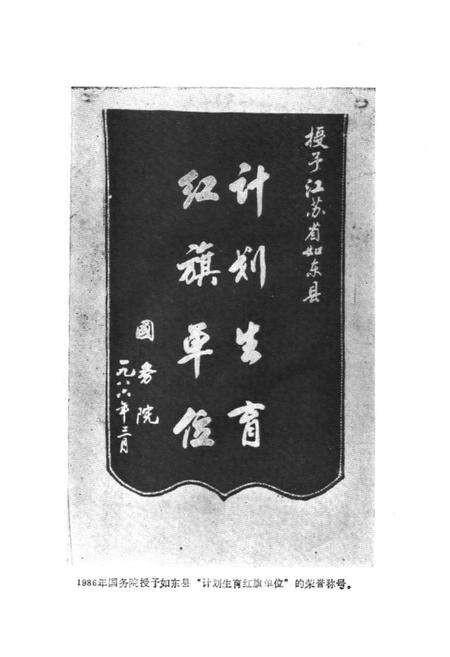 授予江苏省如东县
计划生育
红旗单位
國务院
一九八六年三月
1986年国务院授予如东县“计划生育红旗单位”的荣誉称号。